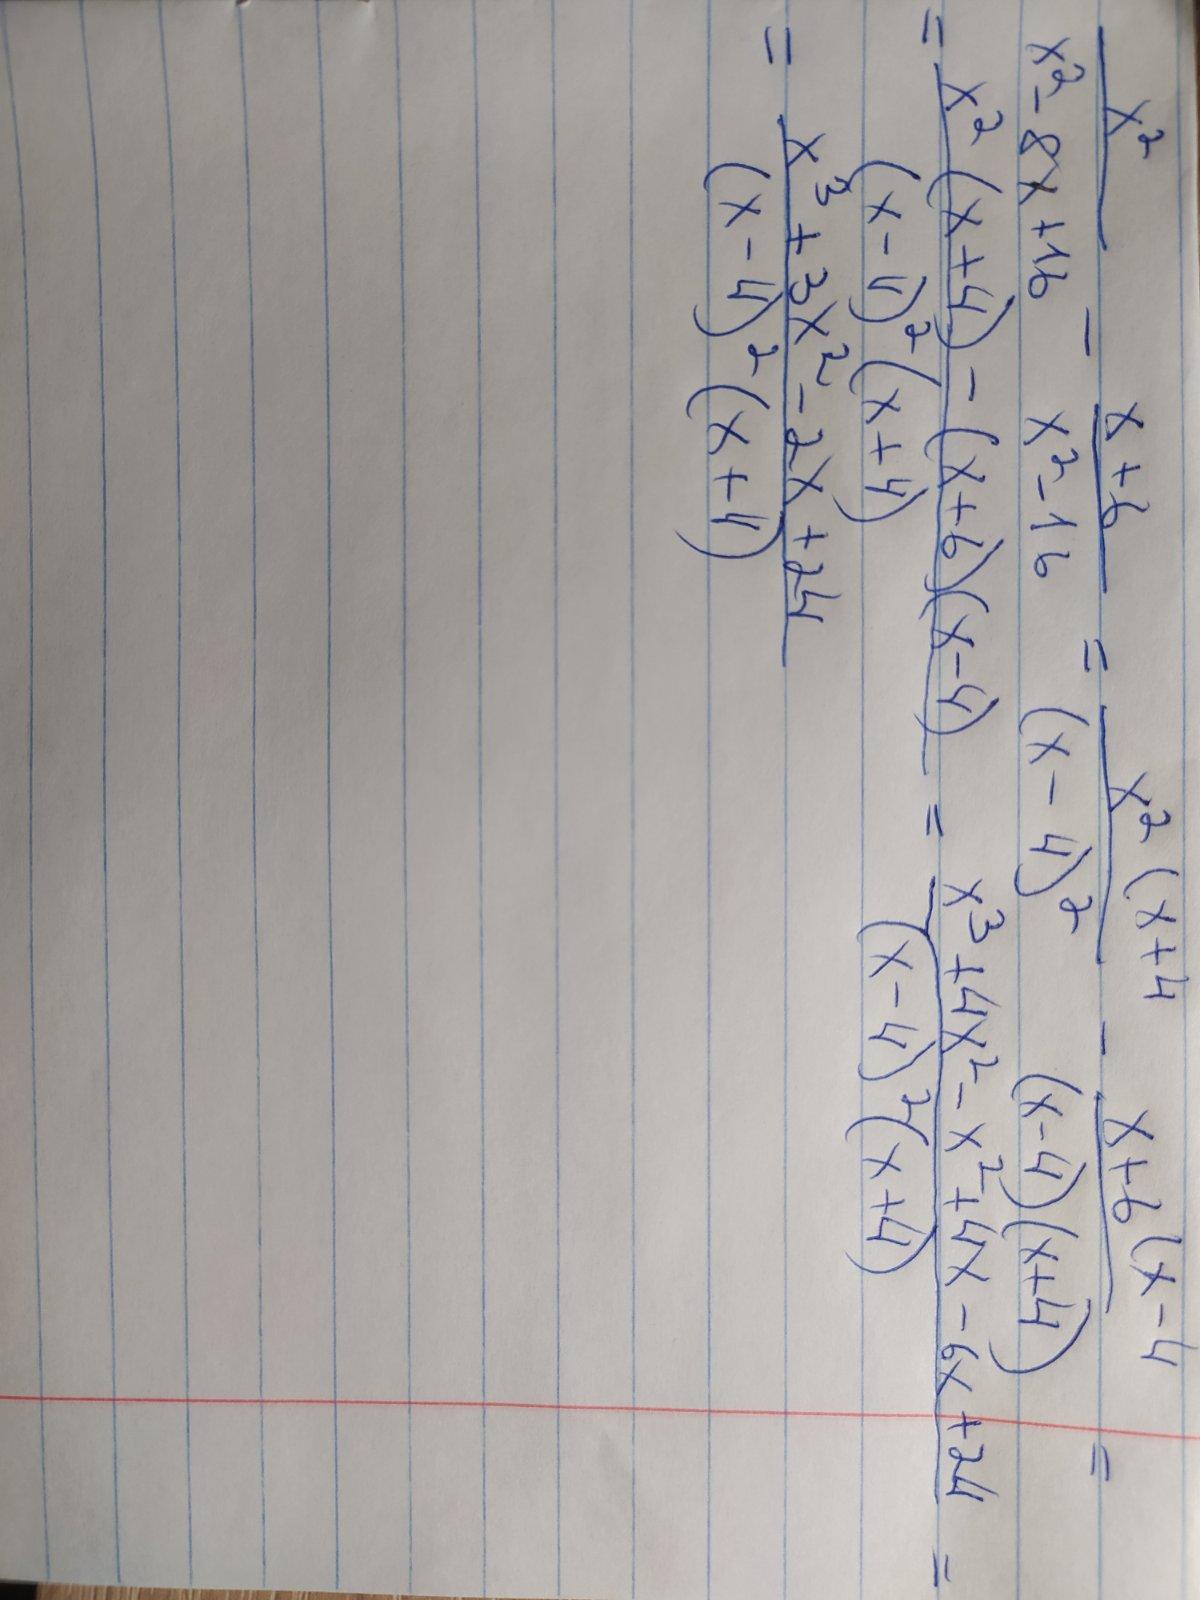 x²/(x²-8x+16) - (x+6)/(x²-16) = x²(x+4/(x-4)² - x+6(x-4/(x-4)(x+4) =
= (x²(x+4)-(x+6)(x-4))/((x-4)²(x+4)) = (x³+4x²-x²+4x-6x+24)/((x-4)²(x+4)) =
= (x³+3x²-2x+24)/((x-4)²(x+4))